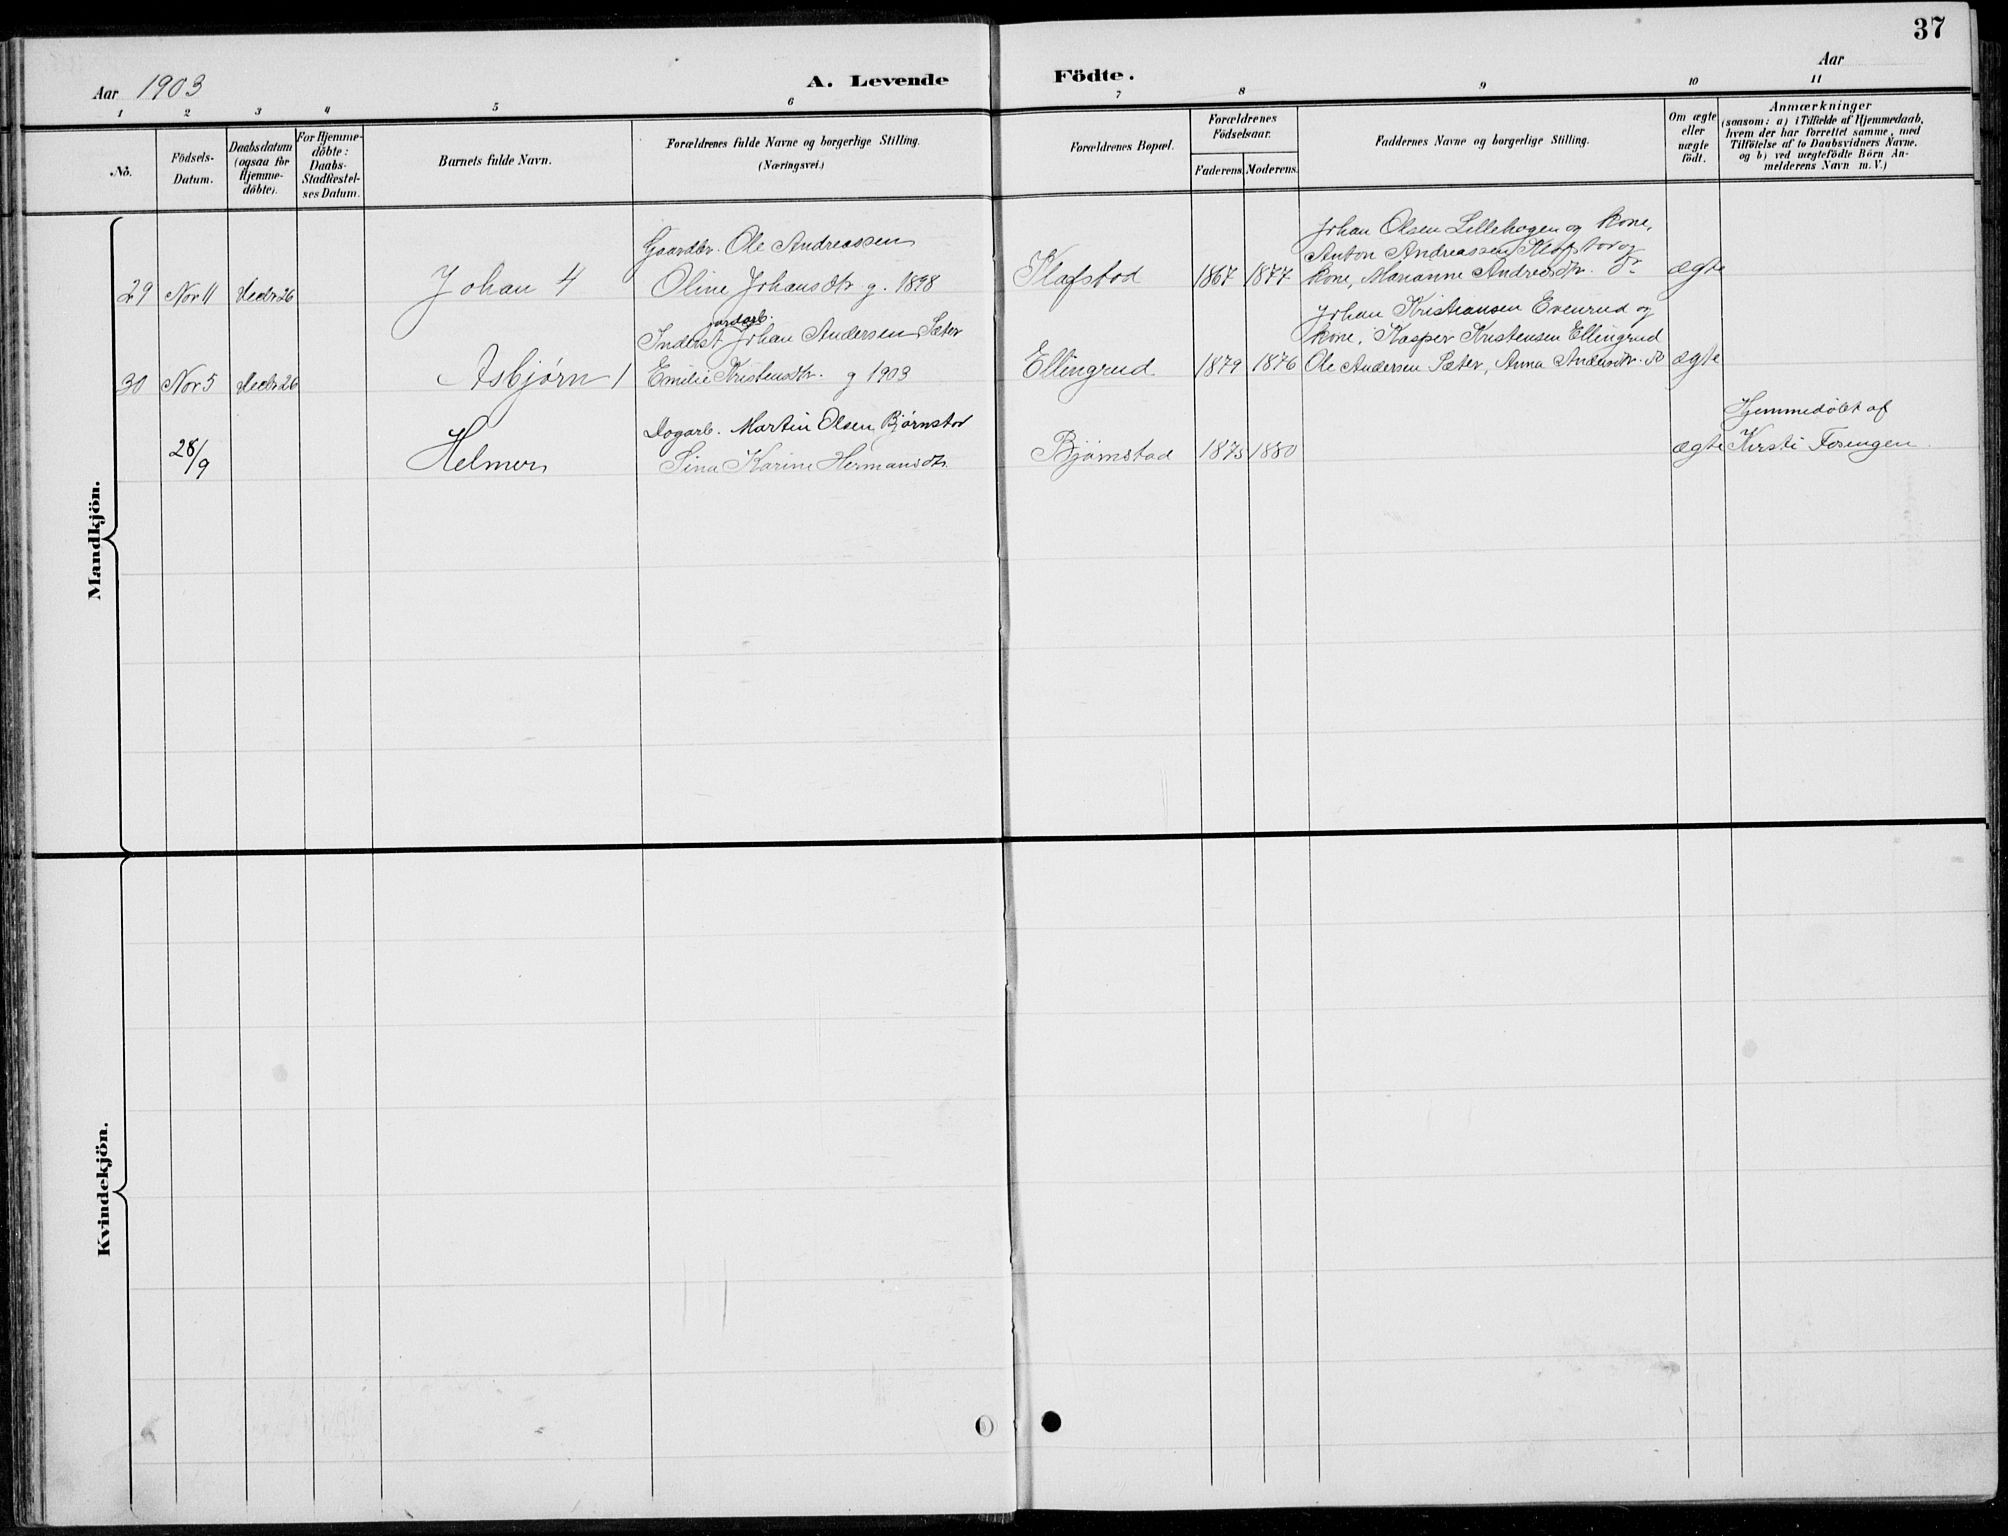 37
Aar 1903
A. Levende Födte.
Aar
1 2 3 4 5 6 7 8 9 10 11
No.
Födsels-
Datum.
Daabsdatum
(ogsaa for
Hjemme-
döbte).
For Hjemme-
döbte:
Daabs-
Stadfestel-
ses Datum.
Barnets fulde Navn.
Forældrenes fulde Navne og borgerlige Stilling.
(Næringsvei.)
Forældrenes Bopæl.
Forældrenes
Födselsaar.
Faderens. Moderens.
Faddernes Navne og borgerlige Stilling.
Om ægte
eller
uægte
födt.
Anmærkninger
(saasom: a) i Tilfælde af Hjemmedaab,
hvem der har forrettet samme, med
Tilföielse af to Daabsvidners Navne,
og b) ved uægtefödte Börn An-
melderens Navn m. V.)
Mandkjön.
29 Nov 11 Decbr 26
Johan 4
Gaardbr. Ole Andreassen
Oline Johansdtr g. 1898
Klafstad
1867 1877
Johan Olsen Lillehagen og kone,
Anton Andreassen Klafstad og
kone, Marianne Andreasdtr.
ægte
30 Nov 5 Decbr 26
Asbjørn 1
jordarb.
Inderst Johan Andersen Sæter
Emilie Kristensdtr. g 1903
Ellingrud
1879 1876
Johan Kristiansen Evenrud og
kone, Kasper Kristensen Ellingrud
Ole Andersen Sæter, Anna Andersdtr.
ægte
28/9
Helmer
Dagarb. Martin Olsen Bjørnstad
Sina Karine Hermansdtr
Bjørnstad
1875 1880
ægte
Hjemmedøbt af
Kirsti Fosengen.
Kvindekjön.